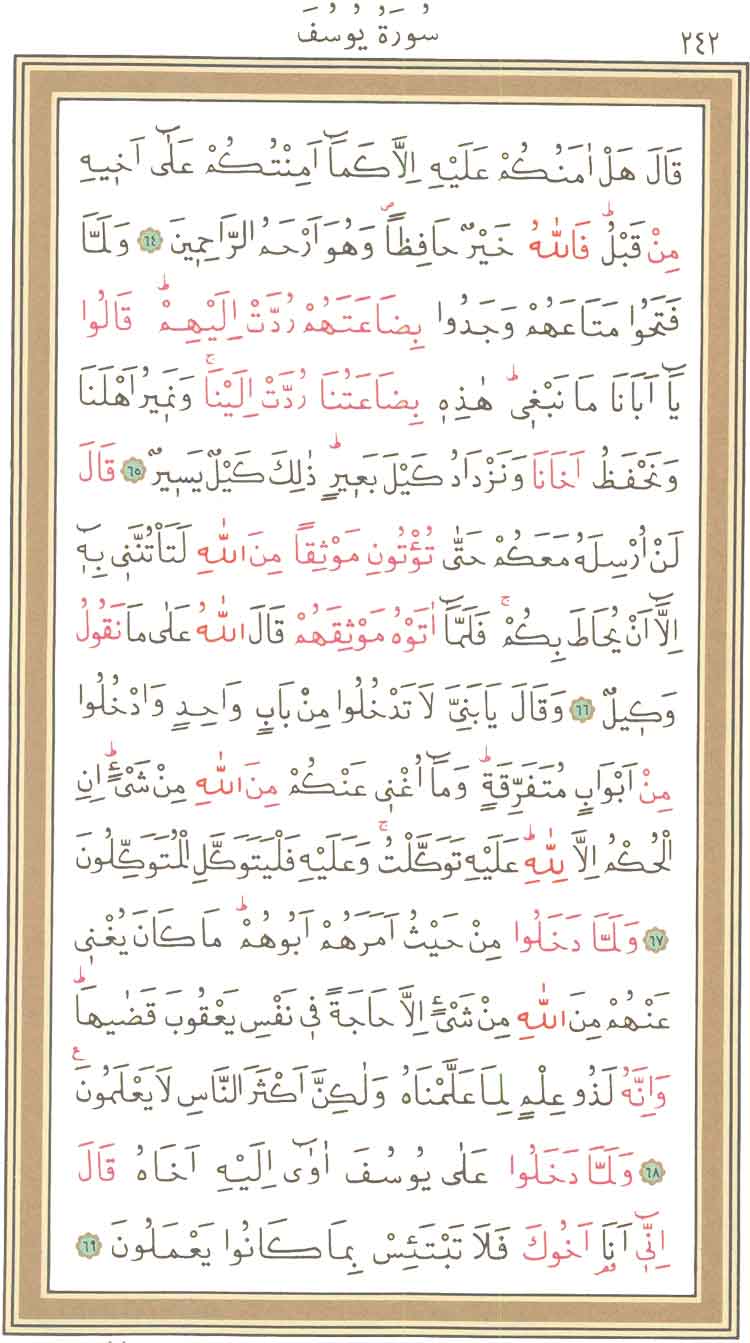 سُورَةُ يُوسُفَ
٢٤٢
قَالَ هَلْ اٰمَنُكُمْ عَلَيْهِ اِلَّا كَمَٓا اَمِنْتُكُمْ عَلٰٓى اَخ۪يهِ
مِنْ قَبْلُۜ فَاللّٰهُ خَيْرٌ حَافِظاًۖ وَهُوَ اَرْحَمُ الرَّاحِم۪ينَ ﴿٦٤﴾ وَلَمَّا
فَتَحُوا مَتَاعَهُمْ وَجَدُوا بِضَاعَتَهُمْ رُدَّتْ اِلَيْهِمْۜ قَالُوا
يَٓا اَبَانَا مَا نَبْغ۪يۜ هٰذِه۪ بِضَاعَتُنَا رُدَّتْ اِلَيْنَاۚ وَنَم۪يرُ اَهْلَنَا
وَنَحْفَظُ اَخَانَا وَنَزْدَادُ كَيْلَ بَع۪يرٍۜ ذٰلِكَ كَيْلٌ يَس۪يرٌ ﴿٦٥﴾ قَالَ
لَنْ اُرْسِلَهُ مَعَكُمْ حَتّٰى تُؤْتُونِ مَوْثِقاً مِنَ اللّٰهِ لَتَأْتُنَّن۪ي بِه۪ٓ
اِلَّٓا اَنْ يُحَاطَ بِكُمْۚ فَلَمَّٓا اٰتَوْهُ مَوْثِقَهُمْ قَالَ اللّٰهُ عَلٰى مَا نَقُولُ
وَك۪يلٌ ﴿٦٦﴾ وَقَالَ يَا بَنِيَّ لَا تَدْخُلُوا مِنْ بَابٍ وَاحِدٍ وَادْخُلُوا
مِنْ اَبْوَابٍ مُتَفَرِّقَةٍۜ وَمَٓا اُغْن۪ي عَنْكُمْ مِنَ اللّٰهِ مِنْ شَيْءٍۜ اِنِ
الْحُكْمُ اِلَّا لِلّٰهِۜ عَلَيْهِ تَوَكَّلْتُۚ وَعَلَيْهِ فَلْيَتَوَكَّلِ الْمُتَوَكِّلُونَ
﴿٦٧﴾ وَلَمَّا دَخَلُوا مِنْ حَيْثُ اَمَرَهُمْ اَبُوهُمْۜ مَا كَانَ يُغْن۪ي
عَنْهُمْ مِنَ اللّٰهِ مِنْ شَيْءٍ اِلَّا حَاجَةً ف۪ي نَفْسِ يَعْقُوبَ قَضٰيهَاۜ
وَاِنَّهُ لَذُو عِلْمٍ لِمَا عَلَّمْنَاهُ وَلٰكِنَّ اَكْثَرَ النَّاسِ لَا يَعْلَمُونَ۟
﴿٦٨﴾ وَلَمَّا دَخَلُوا عَلٰى يُوسُفَ اٰوٰٓى اِلَيْهِ اَخَاهُ قَالَ
اِنّ۪ٓي اَنَا۬ اَخُوكَ فَلَا تَبْتَئِسْ بِمَا كَانُوا يَعْمَلُونَ ﴿٦٩﴾